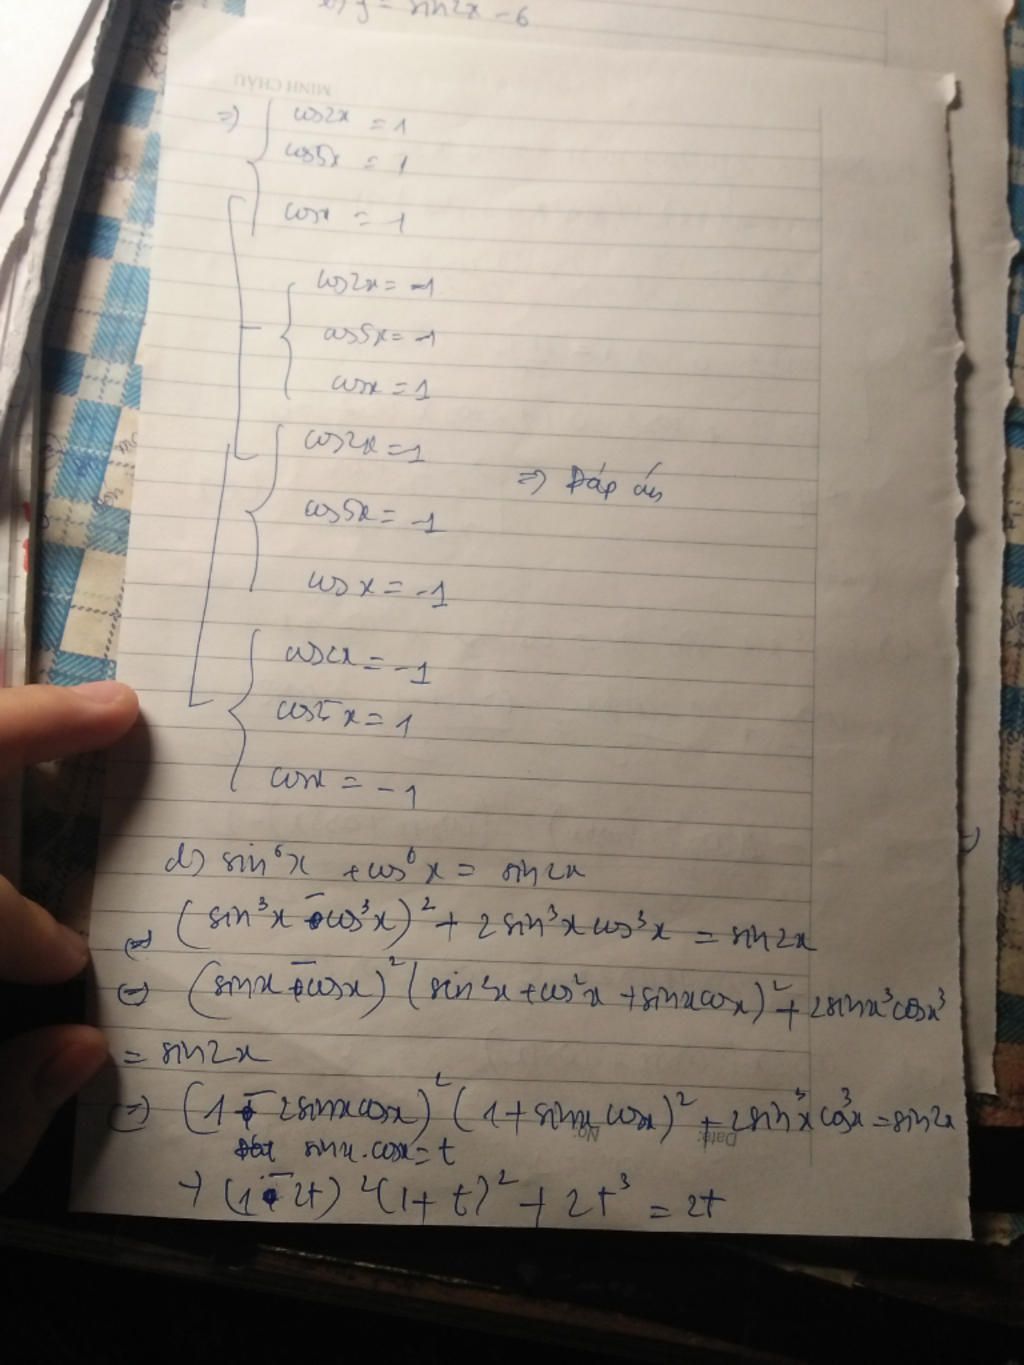 y = sin2x - 6
MINH CHÂU
=> { cos2x = 1
cos5x = 1
cosx = 1
{ cos2x = -1
cos5x = -1
cosx = 1
{ cos2x = 1
=> Đáp án
cos5x = -1
cosx = -1
{ cos2x = -1
cos5x = 1
cosx = -1
d) sin⁶x + cos⁶x = sin2x
(=) (sin³x - cos³x)² + 2sin³xcos³x = sin2x
(=) (sinx - cosx)² (sin²x + cos²x + sinxcosx)² + 2sinx³cosx³
= sin2x
(=) (1 - 2sinxcosx)² (1 + sinxcosx)² + 2sin³xcos³x = sin2x
No: Date:
Đặt sinx.cosx = t
→ (1 - 2t)²(1 + t)² + 2t³ = 2t